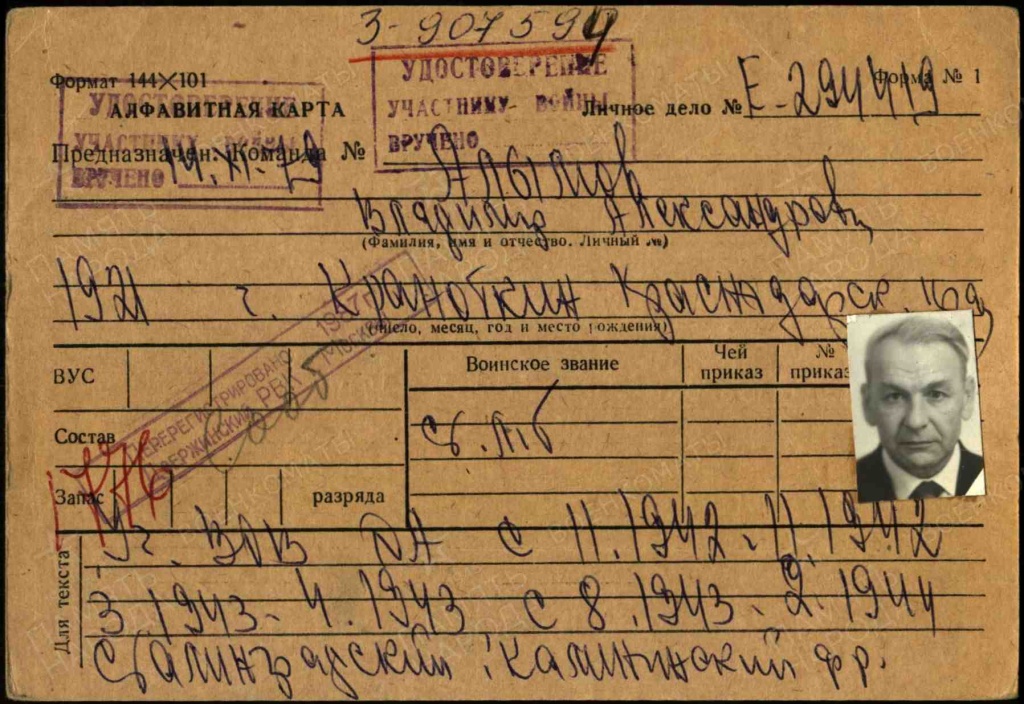 З-907594
Формат 144×101
Форма № 1
УДОСТОВЕРЕНИЕ
УЧАСТНИКУ ВОЙНЫ
ВРУЧЕНО
АЛФАВИТНАЯ КАРТА
УДОСТОВЕРЕНИЕ
УЧАСТНИКУ ВОЙНЫ
ВРУЧЕНО
Личное дело № Е-294419
Предназначен: Команда №
14.XI.79
Алымов
Владимир Александрович
(Фамилия, имя и отчество. Личный №)
1921 г. Краснодарск.
(Число, месяц, год и место рождения)
ПЕРЕРЕГИСТРИРОВАНО
ДЗЕРЖИНСКИЙ РВК
МОСКВЫ
ВУС
Состав
Запас
разряда
Воинское звание
Чей приказ
№ приказ
Для текста
Уч. ВОВ ДА с 11.1942-11.1942
3.1943-4.1943 с 8.1943-2.1944
Сталинградский Калининский фр.